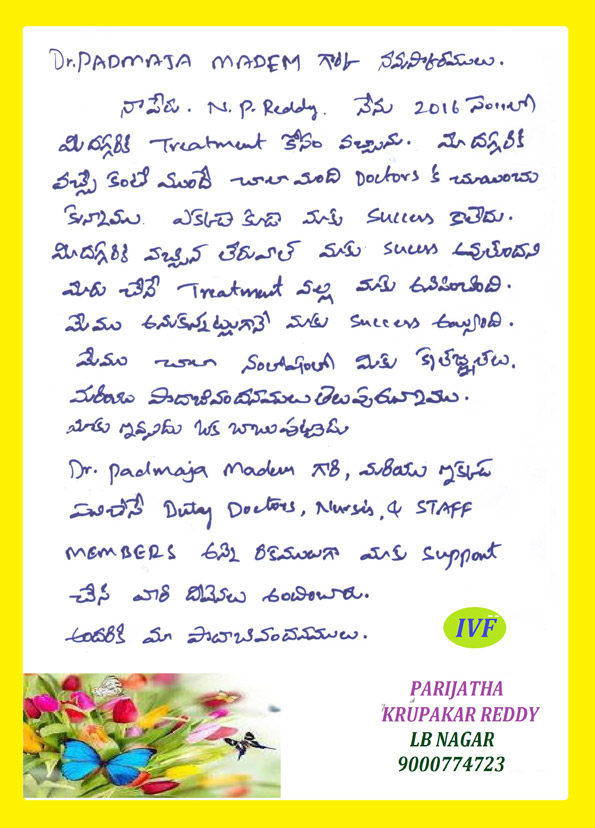 Dr.PADMAJA MADEM గారికి నమస్కారములు.
నా పేరు. N.P.Reddy. నేను 2016 సం॥లో
మీ దగ్గరికి Treatment కోసం వచ్చాను. మీ దగ్గరికి
వచ్చే కంటే ముందే చాలా మంది Doctors కి చూయించు
కున్నాము. ఎక్కడా కూడా మాకు Success కాలేదు.
మీ దగ్గరికి వచ్చిన తరువాత మాకు sucess అవుతుందని
మీరు చేసే Treatment వల్ల మాకు అనిపించింది.
మేము అనుకున్నట్లుగానే మాకు success అయ్యింది.
మేము చాలా సంతోషంగా మీకు కృతజ్ఞతలు.
మరియు పాదాభివందనములు తెలుపుతున్నాము.
మాకు ఇప్పుడు ఒక బాబు పుట్టాడు
Dr. Padmaja Madem గారి, మరియు ఇక్కడ
పనిచేసే Duty Doctors, Nursis, & STAFF
MEMBERS అన్ని రకములుగా మాకు Support
చేసి వారి దీవెనలు అందించారు.
అందరికి మా పాదాభివందనములు.
IVF
PARIJATHA
KRUPAKAR REDDY
LB NAGAR
9000774723